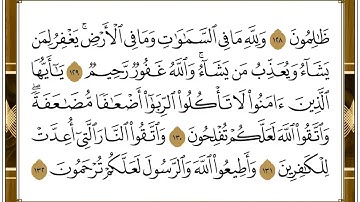 ظَٰلِمُونَ ١٢٨ وَلِلَّهِ مَا فِي ٱلسَّمَٰوَٰتِ وَمَا فِي ٱلْأَرْضِۚ يَغْفِرُ لِمَن
يَشَآءُ وَيُعَذِّبُ مَن يَشَآءُۚ وَٱللَّهُ غَفُورٌ رَّحِيمٌ ١٢٩ يَٰٓأَيُّهَا
ٱلَّذِينَ ءَامَنُوا۟ لَا تَأْكُلُوا۟ ٱلرِّبَوٰٓا۟ أَضْعَٰفًا مُّضَٰعَفَةًۖ
وَٱتَّقُوا۟ ٱللَّهَ لَعَلَّكُمْ تُفْلِحُونَ ١٣٠ وَٱتَّقُوا۟ ٱلنَّارَ ٱلَّتِيٓ أُعِدَّتْ
لِلْكَٰفِرِينَ ١٣١ وَأَطِيعُوا۟ ٱللَّهَ وَٱلرَّسُولَ لَعَلَّكُمْ تُرْحَمُونَ ١٣٢